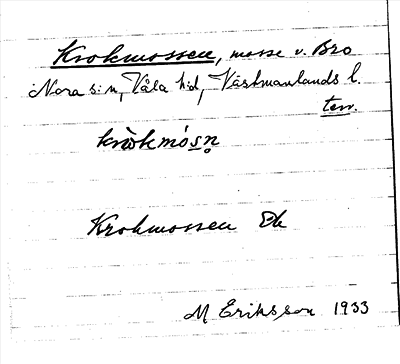 Krokmossen, mosse v. Bro
Nora s:n, Våla hd, Västmanlands l.
terr.
kròkmósn̥
Krokmossen Ek
M Eriksson 1933